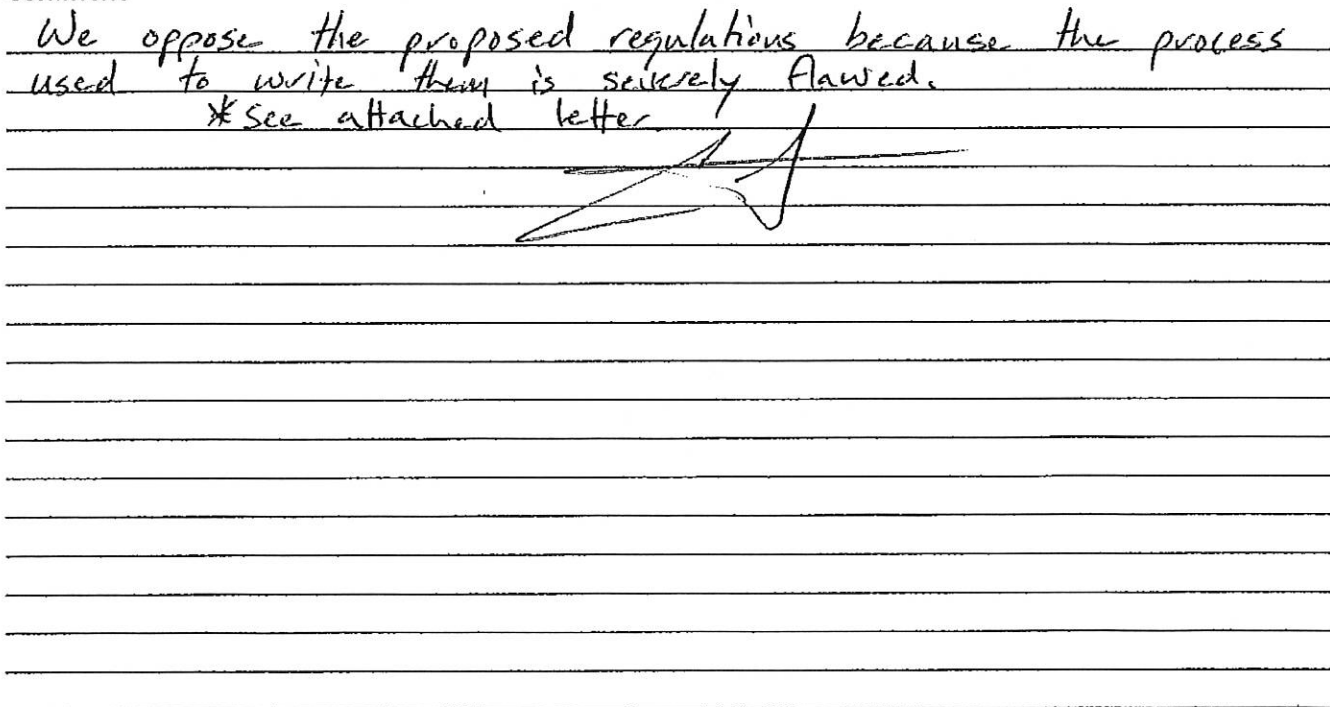 We oppose the proposed regulations because the process
used to write them is severely flawed.
* See attached letter